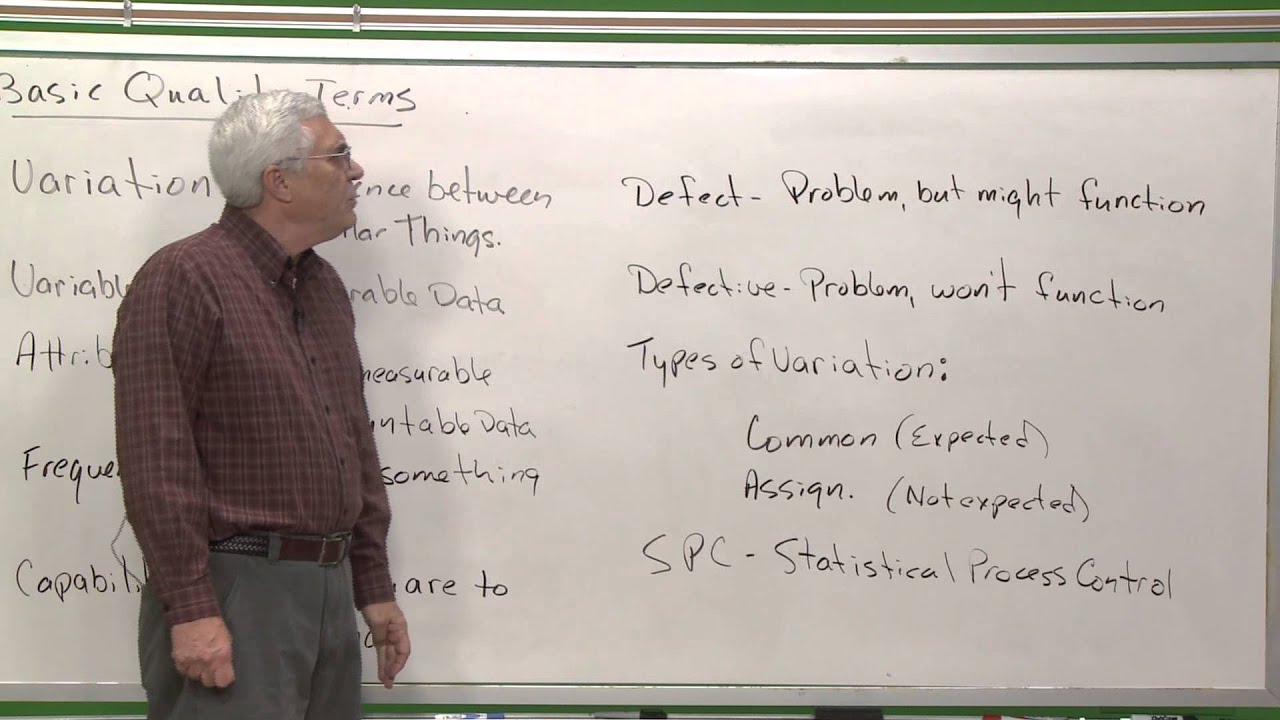 Basic Quali Terms
Variation ence between
lar Things.
Variabl rable Data
Attrib measurable
ntable Data
Freque something
Capabili are to
Defect - Problem, but might function
Defective - Problem, won't function
Types of Variation:
Common (Expected)
Assign. (Not expected)
SPC - Statistical Process Control